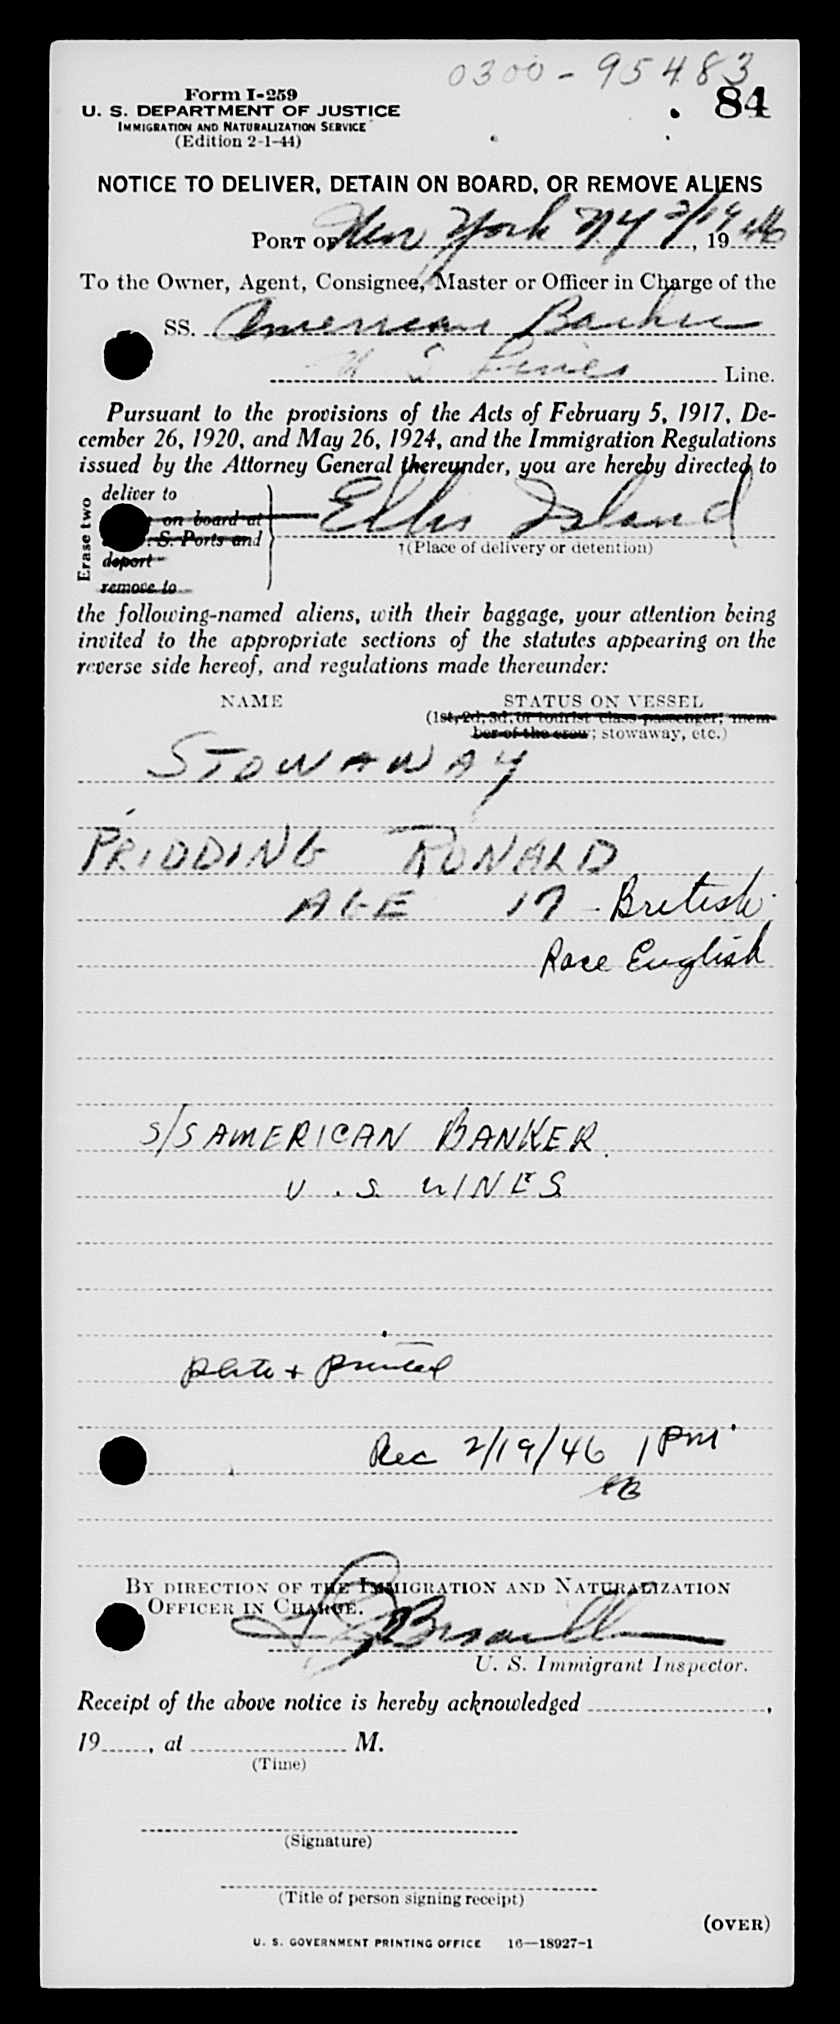 0300-95483
Form I-259
84
U. S. DEPARTMENT OF JUSTICE
IMMIGRATION AND NATURALIZATION SERVICE
(Edition 2-1-44)
NOTICE TO DELIVER, DETAIN ON BOARD, OR REMOVE ALIENS
PORT OF New York NY 2/19, 1946
To the Owner, Agent, Consignee, Master or Officer in Charge of the
SS. American Banker
U S Lines Line.
Pursuant to the provisions of the Acts of February 5, 1917, De-
cember 26, 1920, and May 26, 1924, and the Immigration Regulations
issued by the Attorney General thereunder, you are hereby directed to
Erase two
deliver to
on board at
S. Ports and
deport
remove to
Ellis Island
†(Place of delivery or detention)
the following-named aliens, with their baggage, your attention being
invited to the appropriate sections of the statutes appearing on the
reverse side hereof, and regulations made thereunder:
NAME STATUS ON VESSEL
(1st, 2d, 3d, or tourist class passenger; mem-
ber of the crew; stowaway, etc.)
STOWAWAY
PRIDDING RONALD
AGE 17 - British
Race English
S/S AMERICAN BANKER.
U.S. LINES
plate + printed
Rec 2/19/46 1 PM
BY DIRECTION OF THE IMMIGRATION AND NATURALIZATION
OFFICER IN CHARGE.
U. S. Immigrant Inspector.
Receipt of the above notice is hereby acknowledged ,
19 , at M.
(Time)
(Signature)
(Title of person signing receipt)
(OVER)
U. S. GOVERNMENT PRINTING OFFICE 16—18927-1